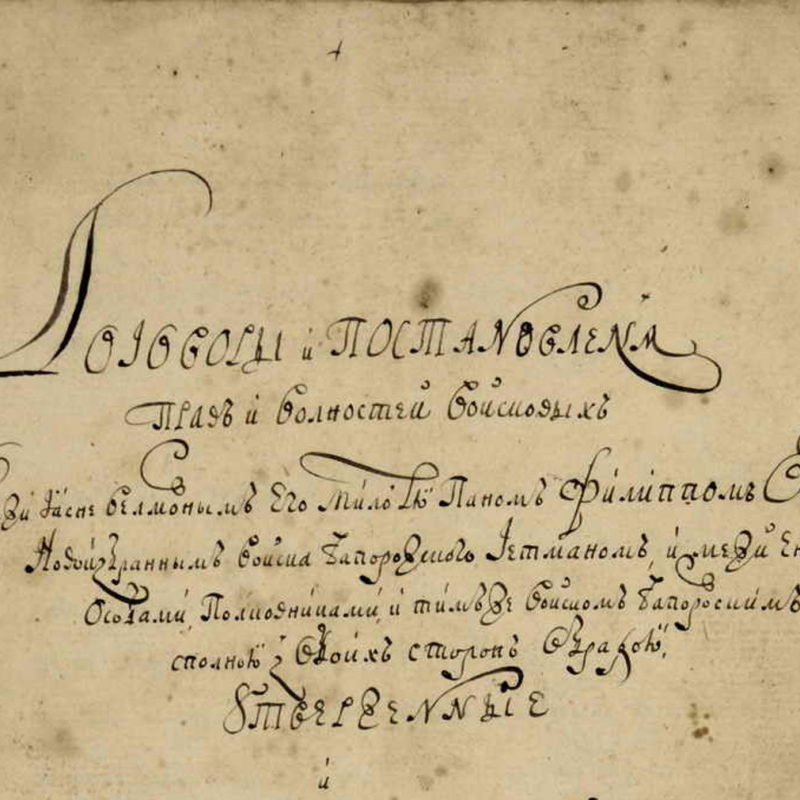 Договоры и Постановленя
Правъ и волностей войсковыхъ
Межи Ясне велможнымъ Его Милостю Паномъ Филиппомъ
Новоизбраннымъ войска Запорожского Гетманомъ, и межи
Особами, Полковниками, и тимъже войскомъ Запорозскимъ
сполною з обоихъ сторонъ обрадою,
Утвержденные
и